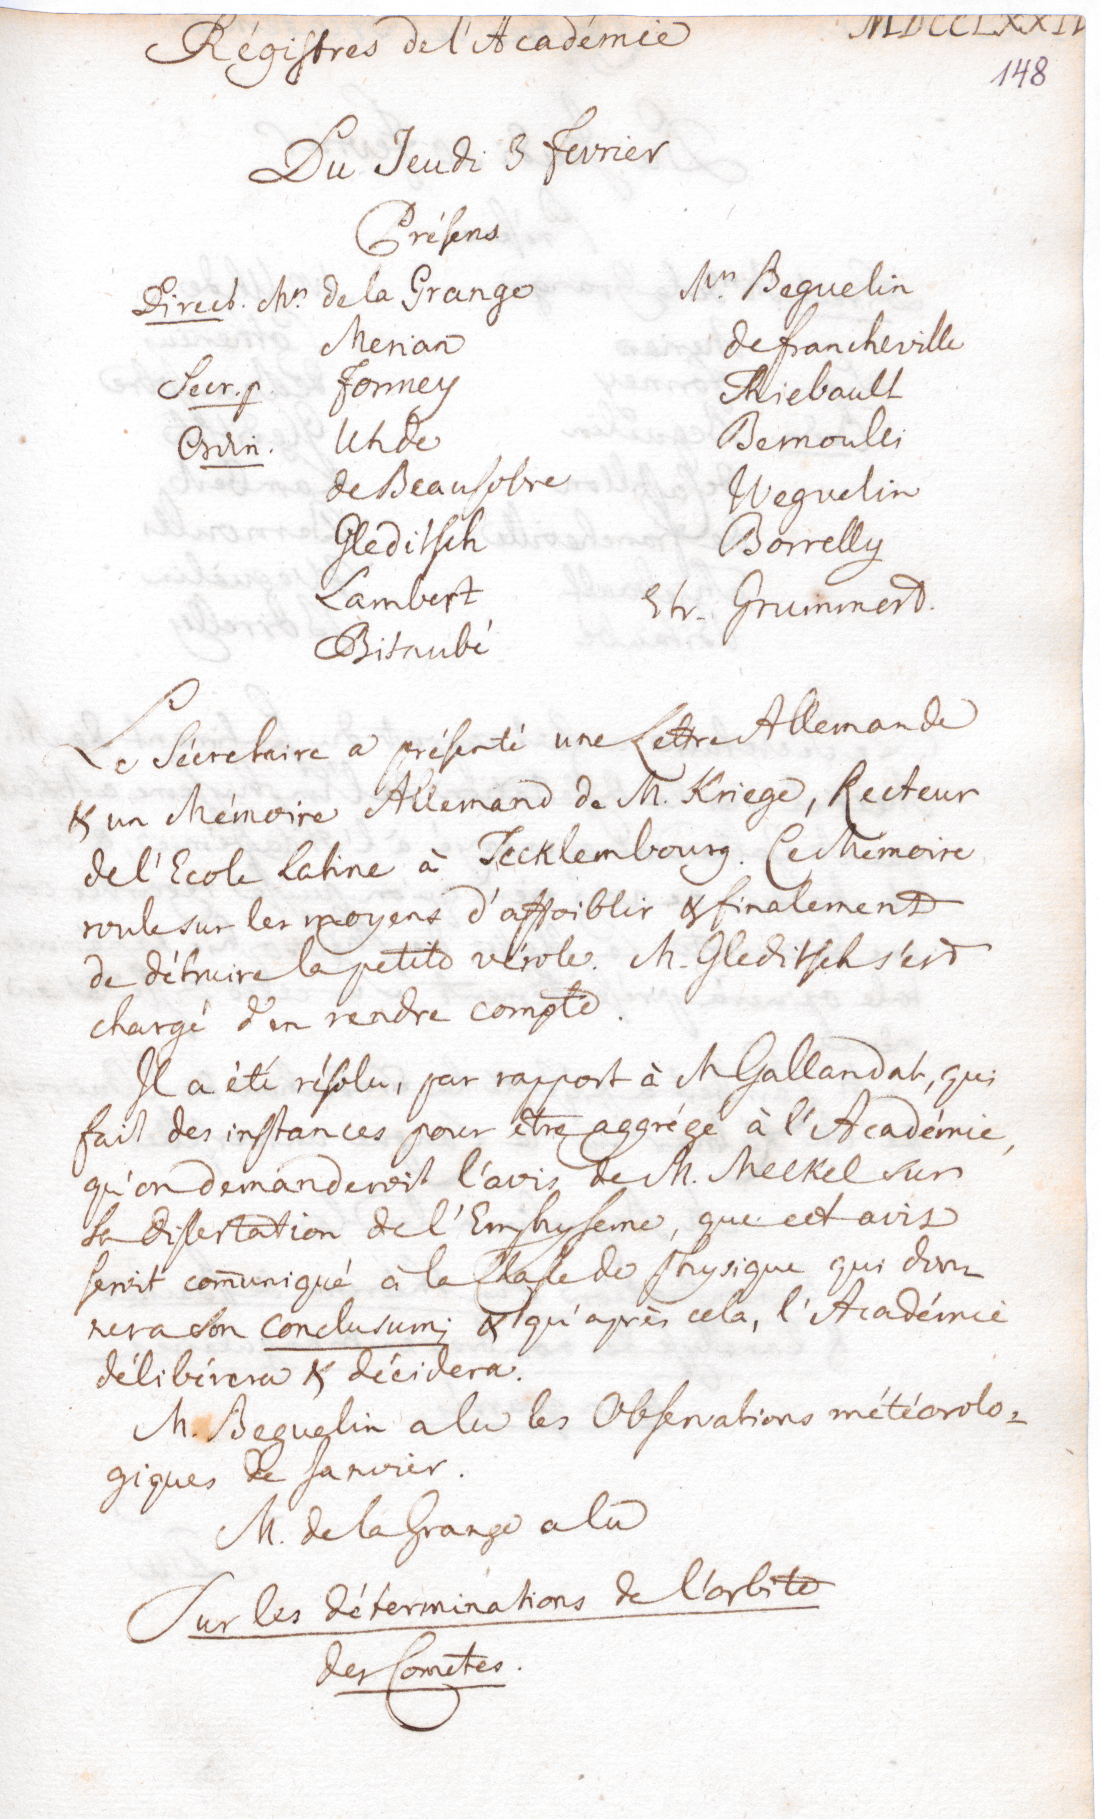 Régistres de l'Académie
MDCCLXXIV
148
Du Jeudi 3 fevrier
Présens
Direct. Mrs de la Grange
Merian
Secr. p. Formey
Ordin. Uhde
de Beausobre
Gleditsch
Lambert
Bitaubé
Mrs Beguelin
de francheville
Thiebault
Bernoulli
Weguelin
Borrelly
Etr. Grummert.
Le Sécretaire a présenté une Lettre Allemande
& un Mémoire Allemand de M. Kriege, Recteur
de l'Ecole Latine à Tecklembourg. Ce Mémoire
roule sur les moyens d'affoiblir & finalement
de détruire la petite vérole. M. Gleditsch s'est
chargé d'en rendre compte.
Il a été résolu, par rapport à M Gallandat, qui
fait des instances pour être aggrégé à l'Académie,
qu'on demanderoit l'avis de M. Meckel sur
sa dissertation de l'Emphyseme, que cet avis
seroit com̄uniqué à la Classe de physique qui don-
nera son conclusum; & qu'après cela, l'Académie
délibérera & décidera.
M. Beguelin a lu les Observations météorolo=
giques de Janvier.
M. de la Grange a lû
Sur les déterminations de l'orbite
des Cometes.